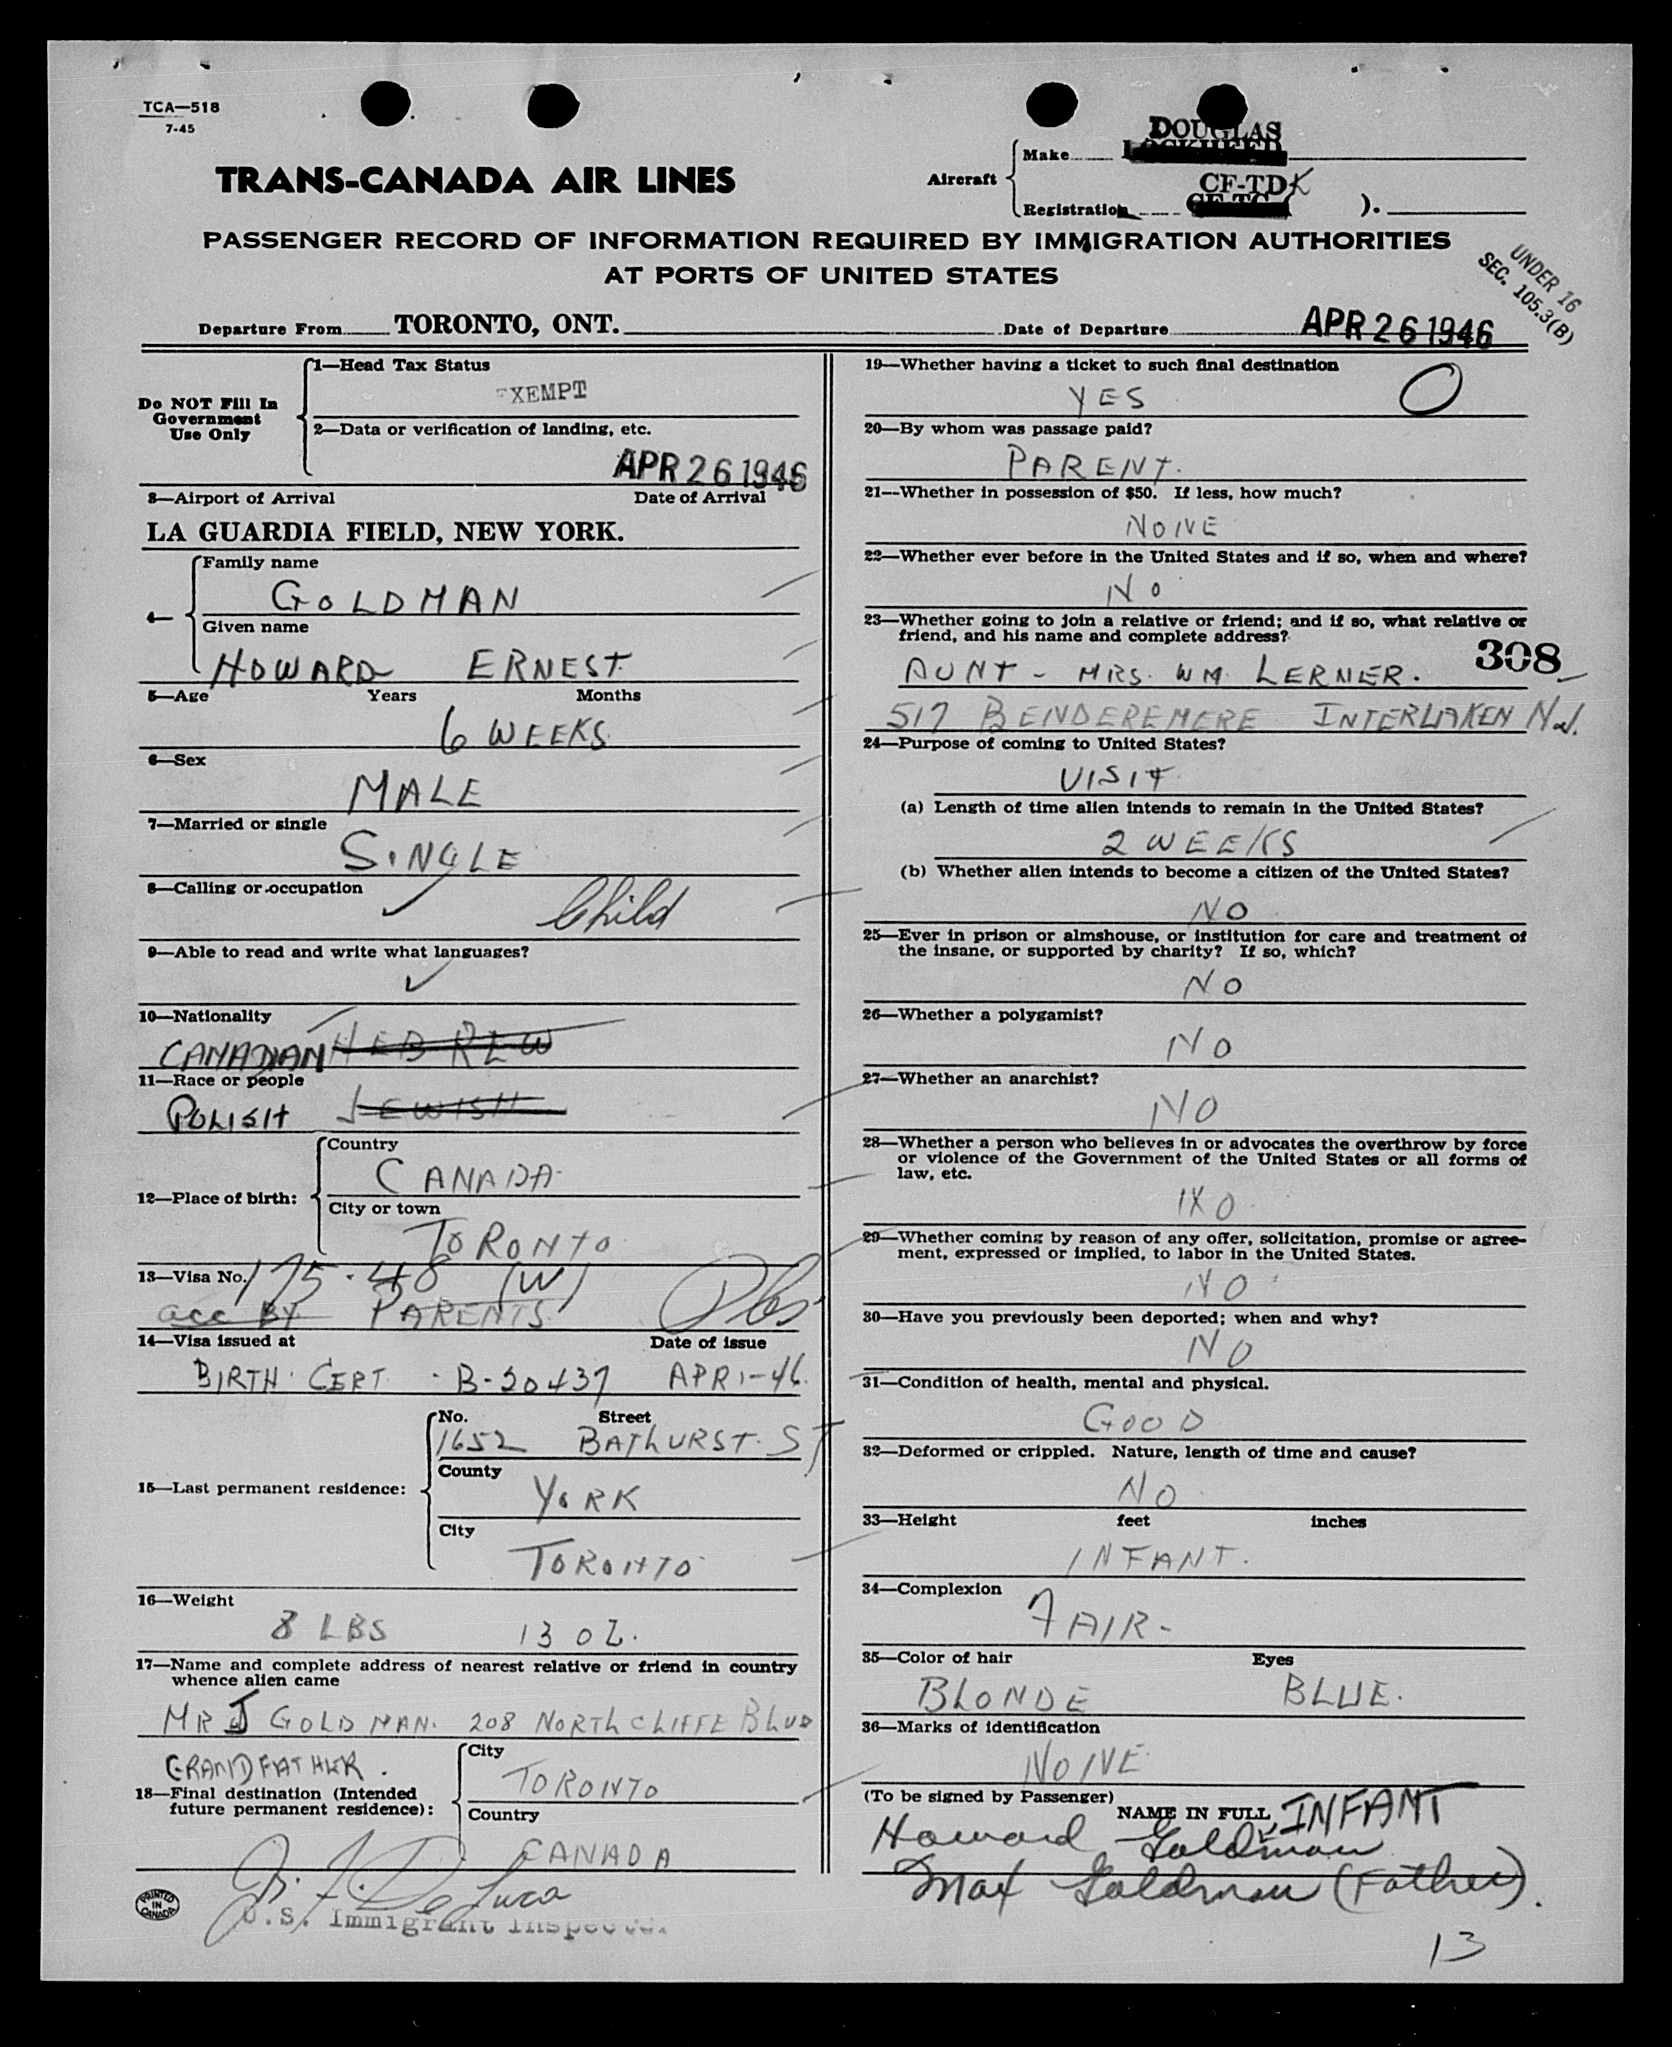 TCA—518
7-45
TRANS-CANADA AIR LINES
Aircraft
Make
DOUGLAS
LOCKHEED
Registration
CF-TDK
).
PASSENGER RECORD OF INFORMATION REQUIRED BY IMMIGRATION AUTHORITIES
AT PORTS OF UNITED STATES
UNDER 16
SEC. 105.3(B)
Departure From TORONTO, ONT.
Date of Departure APR 26 1946
Do NOT Fill In
Government
Use Only
1—Head Tax Status
EXEMPT
2—Data or verification of landing, etc.
APR 26 1946
3—Airport of Arrival Date of Arrival
LA GUARDIA FIELD, NEW YORK.
4—
Family name
GOLDMAN
Given name
HOWARD ERNEST
5—Age Years Months
6 WEEKS
6—Sex
MALE
7—Married or single
SINGLE
8—Calling or occupation
Child
9—Able to read and write what languages?
10—Nationality
CANADIAN HEBREW
11—Race or people
POLISH JEWISH
12—Place of birth:
Country
CANADA
City or town
TORONTO
13—Visa No. 175.48 (W)
acc BY PARENTS
14—Visa issued at Date of issue
BIRTH CERT. B-20437 APR 1-46.
15—Last permanent residence:
No. Street
1652 BATHURST ST
County
YORK
City
TORONTO
16—Weight
8 LBS 13 OZ.
17—Name and complete address of nearest relative or friend in country
whence alien came
MR J GOLDMAN. 208 NORTHCLIFFE BLVD
GRANDFATHER.
18—Final destination (Intended
future permanent residence):
City
TORONTO
Country
CANADA
PRINTED
IN
CANADA
De Luca
U.S. Immigrant Inspector
19—Whether having a ticket to such final destination
YES O
20—By whom was passage paid?
PARENT.
21—Whether in possession of $50. If less, how much?
NONE
22—Whether ever before in the United States and if so, when and where?
NO
23—Whether going to join a relative or friend; and if so, what relative or
friend, and his name and complete address?
308
AUNT - MRS. WM. LERNER.
517 BENDEREMERE INTERLAKEN N.J.
24—Purpose of coming to United States?
VISIT
(a) Length of time alien intends to remain in the United States?
2 WEEKS
(b) Whether alien intends to become a citizen of the United States?
NO
25—Ever in prison or almshouse, or institution for care and treatment of
the insane, or supported by charity? If so, which?
NO
26—Whether a polygamist?
NO
27—Whether an anarchist?
NO
28—Whether a person who believes in or advocates the overthrow by force
or violence of the Government of the United States or all forms of
law, etc.
NO
29—Whether coming by reason of any offer, solicitation, promise or agree-
ment, expressed or implied, to labor in the United States.
NO
30—Have you previously been deported; when and why?
NO
31—Condition of health, mental and physical.
GOOD
32—Deformed or crippled. Nature, length of time and cause?
NO
33—Height feet inches
INFANT.
34—Complexion
FAIR-
35—Color of hair Eyes
BLONDE BLUE.
36—Marks of identification
NONE
(To be signed by Passenger) NAME IN FULL INFANT
Howard Goldman
Max Goldman (Father).
13